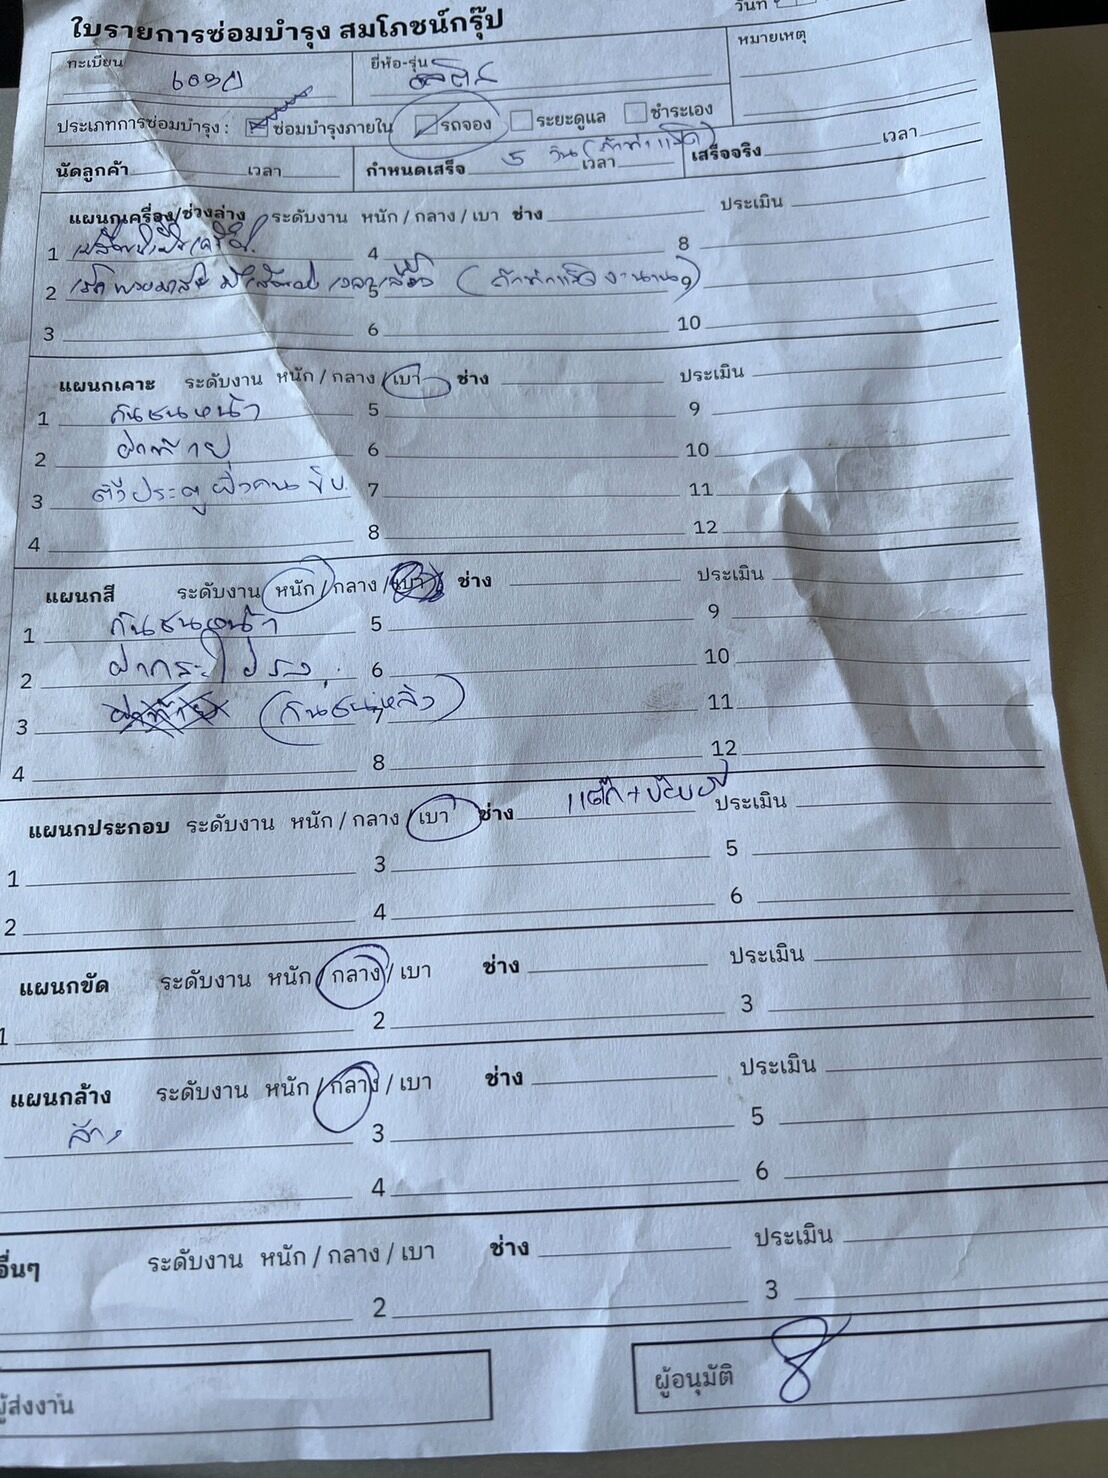 ใบรายการซ่อมบำรุง สมโภชน์กรุ๊ป
วันที่
ทะเบียน
ยี่ห้อ-รุ่น
หมายเหตุ
ประเภทการซ่อมบำรุง : ซ่อมบำรุงภายใน รถจอง ระยะดูแล ชำระเอง
นัดลูกค้า เวลา กำหนดเสร็จ 5 วัน เวลา เสร็จจริง เวลา
แผนกเครื่อง/ช่วงล่าง ระดับงาน หนัก / กลาง / เบา ช่าง ประเมิน
1 4 8
2 5 9
3 6 10
แผนกเคาะ ระดับงาน หนัก / กลาง / เบา ช่าง ประเมิน
1 กันชนหน้า 5 9
2 ฝาท้าย 6 10
3 ประตูฝั่งคนขับ 7 11
4 8 12
แผนกสี ระดับงาน หนัก / กลาง / เบา ช่าง ประเมิน
1 กันชนหน้า 5 9
2 ฝากระโปรง 6 10
3 (กันชนหลัง) 7 11
4 8 12
แผนกประกอบ ระดับงาน หนัก / กลาง / เบา ช่าง ประเมิน
1 3 5
2 4 6
แผนกขัด ระดับงาน หนัก / กลาง / เบา ช่าง ประเมิน
1 2 3
แผนกล้าง ระดับงาน หนัก / กลาง / เบา ช่าง ประเมิน
ล้าง 3 5
4 6
อื่นๆ ระดับงาน หนัก / กลาง / เบา ช่าง ประเมิน
2 3
ผู้ส่งงาน
ผู้อนุมัติ